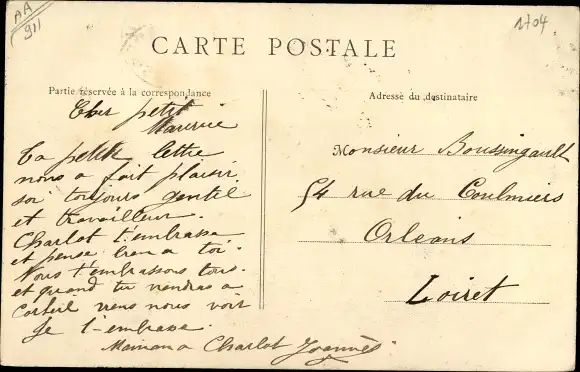 AA
911
1704
CARTE POSTALE
Partie réservée à la correspondance
Adresse du destinataire
Cher petit
Maurice
Ta petite lettre
nous a fait plaisir.
soi toujours gentil
et travailleur.
Charlot t'embrasse
et pense bien a toi.
Nous t'embrassons tous.
et quand tu viendras a
Corbeil viens nous voir
Je t'embrasse.
Maman a Charlot
Monsieur Boussingault
54 rue du Coulmiers
Orleans
Loiret